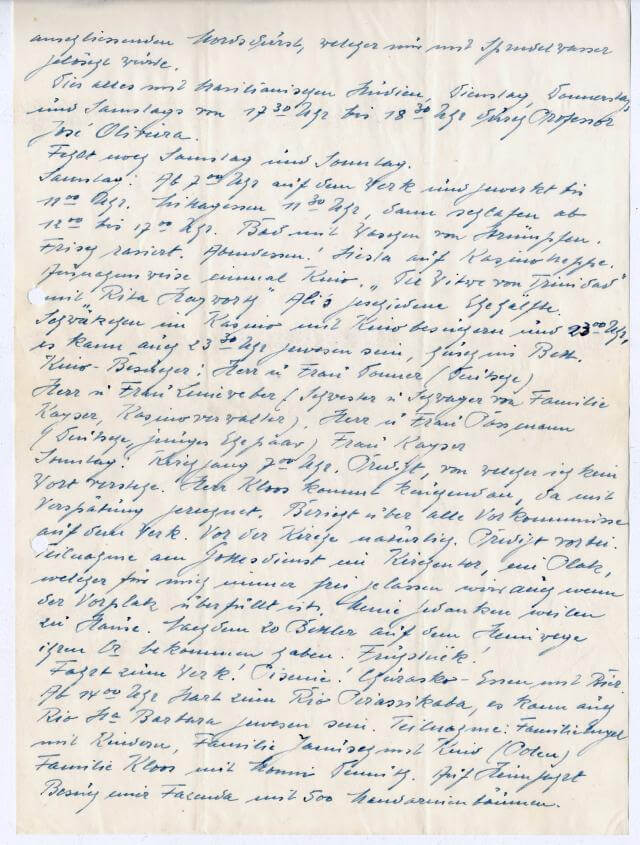 anschliessenden Mordsdurst, welcher nur mit Sprudelwasser
gelöscht würde.
Dies alles mit brasilianischen Studien, Dienstag, Donnerstag
und Samstags von 17 30 Uhr bis 18 30 Uhr durch Professor
José Oliveira.
Fehlt noch Samstag und Sonntag.
Samstag: Ab 7 00 Uhr auf dem Werk und gewerkt bis
11 00 Uhr. Mittagessen 11 30 Uhr, dann schlafen ab
12 00 bis 17 00 Uhr. Bad mit Waschen von Strümpfen.
Frisch rasiert. Abendessen! Siesta auf Kasinotreppe.
Ausnahmsweise einmal Kino. "Die Witwe von Trinidad"
mit Rita Hayworth" Alis geschiedene Ehehälfte.
im Kasino mit Kinobesuchern und 23 00 Uhr,
es kann auch 23 30 Uhr gewesen sein, husch ins Bett.
Kino-Besucher: Herr u Frau Donner (Deutsche)
Herr u Frau Leineweber (Schwester u Schwager von Familie
Kayser, Kasinoverwalter). Herr u Frau Passmann
(Deutsche, junges Ehepaar) Frau Kayser
Sonntag: Kirchgang 7 00 Uhr. Predigt, von welcher ich kein
Wort verstehe. Herr Kloos kommt keuchend an, da mit
Verspätung gerechnet. Bericht über alle Vorkommnisse
auf dem Werk. Vor der Kirche natürlich. Predigt vorbei.
Teilnahme am Gottesdienst im Kirchentor, ein Platz,
welcher für mich immer frei gelassen wird auch wenn
der Vorplatz überfüllt ist. Meine Gedanken weilen
zu Hause. Nachdem 20 Bettler auf dem Heimwege
ihren bekommen haben. Frühstück!
Fahrt zum Werk! Piscine! Churasko-Essen mit Bier.
Ab 14 00 Uhr Start zum Rio Pirassikaba, es kann auch
Rio Sta Barbara gewesen sein. Teilnahme: Familie
mit Kindern, Familie mit Kind (Polen)
Familie Kloos mit Auf Heimfahrt
Besuch einer Fazenda mit 500 Mandarinenbäumen.